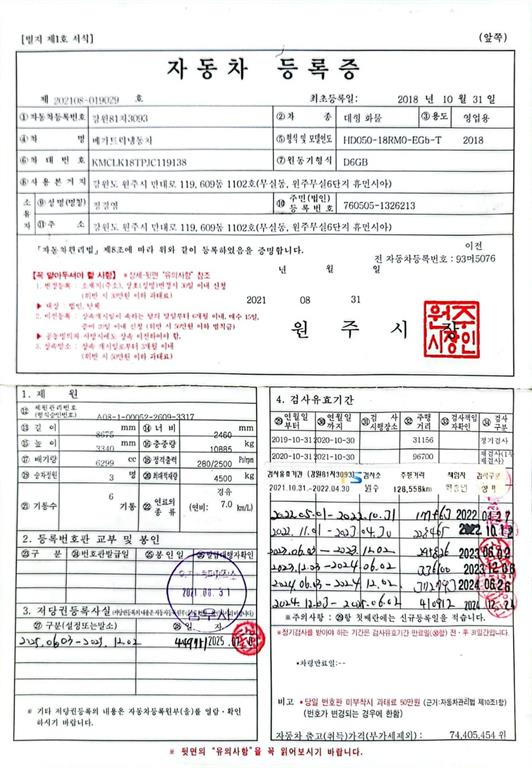 [별지 제1호 서식] (앞쪽)
자동차 등록증
제 202108-019029 호 최초등록일: 2018 년 10 월 31 일
① 자동차등록번호 강원81자3093 ② 차 종 대형 화물 ③ 용도 영업용
④ 차 명 메가트럭냉동차 ⑤ 형식 및 모델연도 HD050-18RM0-EGb-T 2018
⑥ 차 대 번 호 KMCLK18TPJC119138 ⑦ 원동기형식 D6GB
⑧ 사용본거지 강원도 원주시 만대로 119, 609동 1102호(무실동, 원주무실6단지 휴먼시아)
소유자 ⑨ 성명(명칭) 정경영 ⑩ 주민(법인)등록번호 760505-1326213
⑪ 주 소 강원도 원주시 만대로 119, 609동 1102호(무실동, 원주무실6단지 휴먼시아)
「자동차관리법」제8조에 따라 위와 같이 등록하였음을 증명합니다.
이전
전 자동차등록번호 : 93머5076
년 월 일
[꼭 알아두셔야 할 사항] *상세-뒷면 "유의사항" 참조
1. 변경등록 : 소재지(주소), 상호(성명)변경시 30일 이내 신청
(위반 시 30만원 이하 과태료)
▶ 대상 : 법인, 단체
2021 08 31
원 주 시 장
원주시장인
(위반 시 50만원 이하 과태료)
1. 제 원
⑫ 제원관리번호(형식승인번호) A08-1-00052-2609-3317
⑬ 길 이 8675 mm ⑭ 너 비 2460 mm
⑮ 높 이 3340 mm ⑯ 총중량 10885 kg
⑰ 배기량 6299 cc ⑱ 정격출력 280/2500 Ps/rpm
⑲ 승차정원 3 명 ⑳ 최대적재량 4500 kg
㉑ 기통수 6 기통 ㉒ 연료의 종류 경유 (연비: 7.0 km/L)
2. 등록번호판 교부 및 봉인
㉓ 구 분 ㉔ 번호판발급일 ㉕ 봉인일 ㉖ 발급대행자확인
2021 08. 3 1
3. 저당권등록사실
㉗ 구분(설정또는말소) ㉘ 일 자
2025.06.03
※ 기타 저당권등록의 내용은 자동차등록원부(을)를 열람·확인
하시기 바랍니다.
4. 검사유효기간
㉙ 연월일부터 ㉚ 연월일까지 ㉛ 검사시행장소 ㉜ 주행거리 ㉝ 검사책임자확인 ㉞ 검사구분
2019-10-31 2020-10-30 31156 정기검사
2020-10-31 2021-10-30 96700
검사유효기간 (강원81자3093) 검사소 주행거리 책임자 검사
2021.10.31.~2022.04.30 원주 128,558km
2022.05.01 - 2022.10.31 2022 04.27
2022.11.01 2022 10.12
2023.06.02
2023.12.03 2023 12.06
2024.06.03 2024 06.26
2024.12.03 - 2025.06.02 410912
*주의사항 : ㉙항 첫째란에는 신규등록일을 적습니다.
*정기검사를 받아야 하는 기간은 검사유효기간 만료일(㉚항) 전·후 31일간입니다.
*차령만료일:
비고 * 당일 번호판 미부착시 과태료 50만원 (근거:자동차관리법 제10조1항)
(번호가 변경되는 경우에 한함)
자동차 출고(취득)가격(부가세제외): 74,405,454 원
※ 뒷면의 "유의사항"을 꼭 읽어보시기 바랍니다.